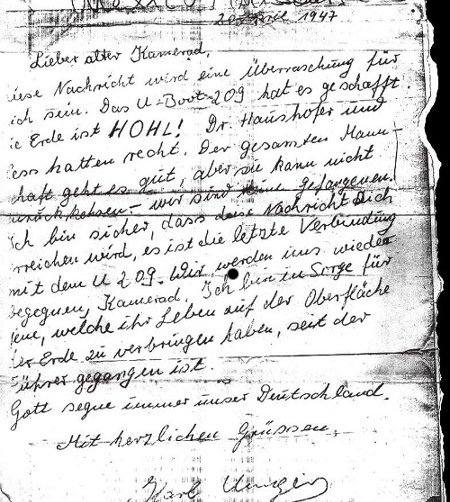 1947
Lieber alter Kamerad,
iese Nachricht wird eine Überraschung für
ich sein. Das U-Boot-209 hat es geschafft.
ie Erde ist HOHL! Dr. Haushofer und
ess hatten recht. Der gesamten Mann-
chaft geht es gut, aber sie kann nicht
zurückkehren - wir sind keine Gefangenen.
Ich bin sicher, dass diese Nachricht Dich
rreichen wird, es ist die letzte Verbindung
mit dem U 209. Wir werden uns wieder
begegnen, Kamerad. Ich bin in Sorge für
jene, welche ihr Leben auf der Oberfläche
der Erde zu verbringen haben, seit der
Führer gegangen ist.
Gott segne immer unser Deutschland.
Mit herzlichen Grüssen,
Karl Unger